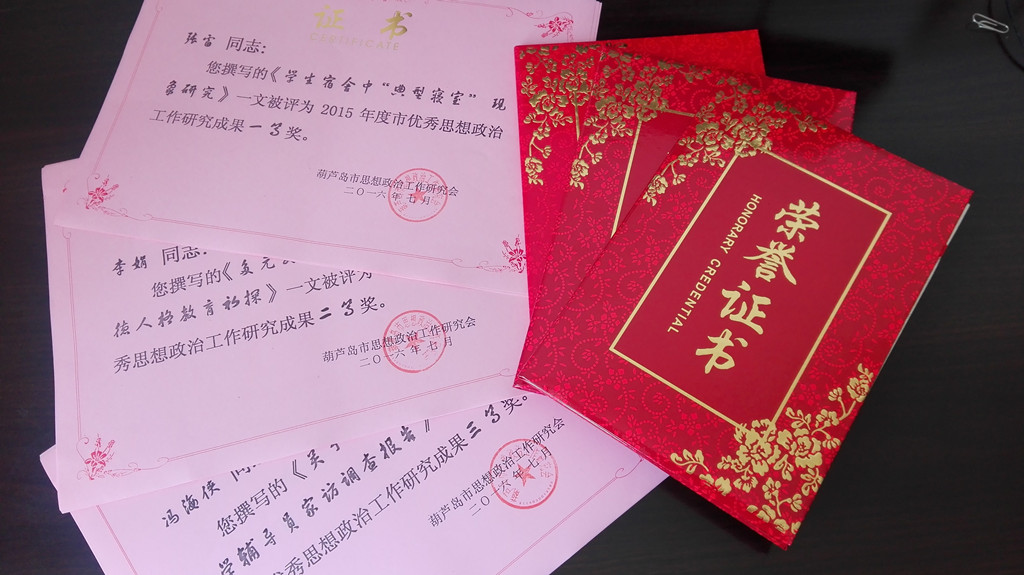 证书
CERTIFICATE
张雷 同志：
您撰写的《学生宿舍中“典型寝室”现
象研究》一文被评为 2015 年度市优秀思想政治
工作研究成果一等奖。
葫芦岛市思想政治工作研究会
二〇一六年七月
李娟 同志：
您撰写的《多元
德人格教育初探》一文被评为
秀思想政治工作研究成果二等奖。
葫芦岛市思想政治工作研究会
二〇一六年七月
冯海侠 同
您撰写的《关于
学辅导员家访调查报告》
优秀思想政治工作研究成果三等奖。
葫芦岛市思想政治工作研究会
二〇一六年七月
荣誉证书
HONORARY CREDENTIAL